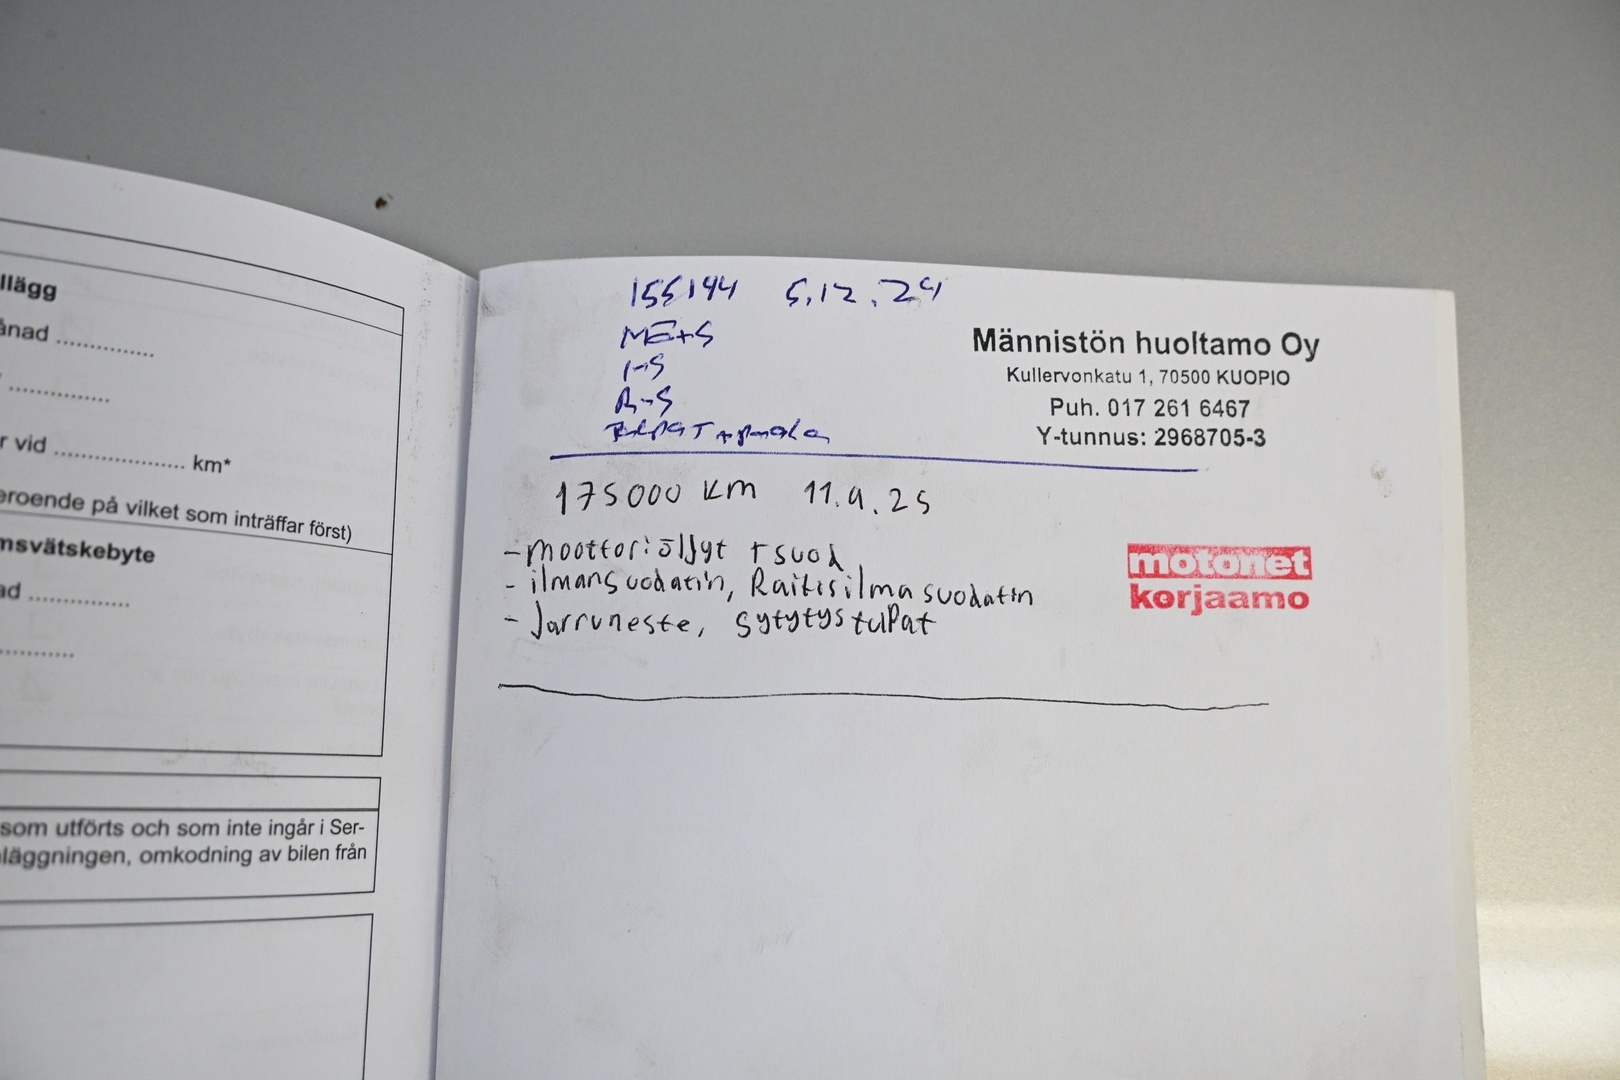 llägg
ånad ...............
...............
r vid .................... km*
eroende på vilket som inträffar först)
msvätskebyte
ad ...............
...............
som utförts och som inte ingår i Ser-
läggningen, omkodning av bilen från
155194 5.12.24
ME+S
I-S
R-S
Männistön huoltamo Oy
Kullervonkatu 1, 70500 KUOPIO
Puh. 017 261 6467
Y-tunnus: 2968705-3
175000 km 11.9.25
- moottoriöljyt + suod
- ilmansuodatin, Raitisilmasuodatin
- Jarruneste, sytytystulpat
motonet
korjaamo